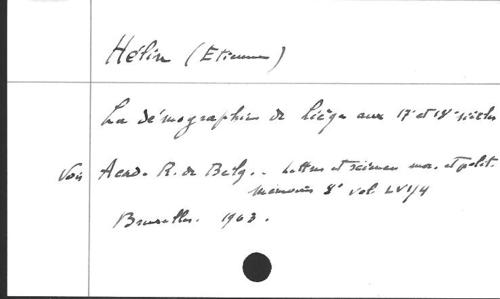 Hélin (Etienne)
La démographie de Liège aux 17e et 18e siècles
Voir Acad. R. de Belg. - Lettres et sciences mor. et polit.
Mémoires 8° vol. LVI/4
Bruxelles. 1963.